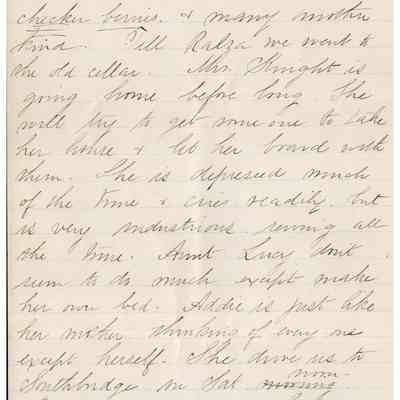 checker berries. & many another
kind. Tell Ralza we went to
the old cellar. Mrs. Knight is
going home before long. She
will try to get some one to take
her house & let her board with
them. She is depressed much
of the time & cries readily but
is very industrious sewing all
the time. Aunt Lucy don't
seem to do much except make
her own bed. Addie is just like
her mother thinking of every one
except herself. She drove us to
noon
Southbridge on Sat. morning.